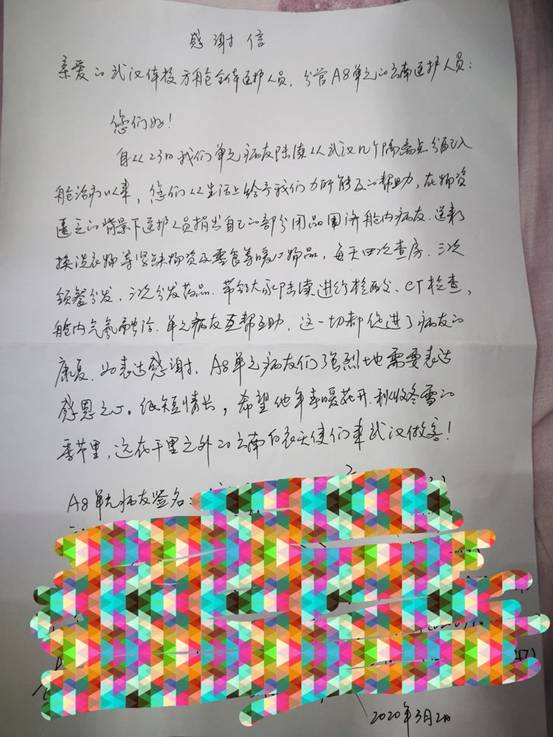 感谢信
亲爱的武汉体校方舱全体医护人员,分管A8单元的云南医护人员:
您们好!
自从23日我们单元病友陆续从武汉几个隔离点分配入
舱治病以来,您们从生活上给予我们力所能及的帮助,在物资
匮乏的背景下医护人员捐出自己的部分用品周济舱内病友.送来
换洗衣物等紧缺物资及零食等暖心物品,每天四次查房.三次
领餐分发.三次分发药品.带领大家陆续进行核酸、CT检查,
舱内气氛融洽.单元病友互帮互助.这一切都促进了病友的
康复.为表达感谢.A8单元病友们强烈地需要表达
感恩之心。纸短情长,希望他年春暖花开.秋收冬雪的
季节里,远在千里之外的云南白衣天使们来武汉做客!
A8单元病友签名:
2020年3月2日